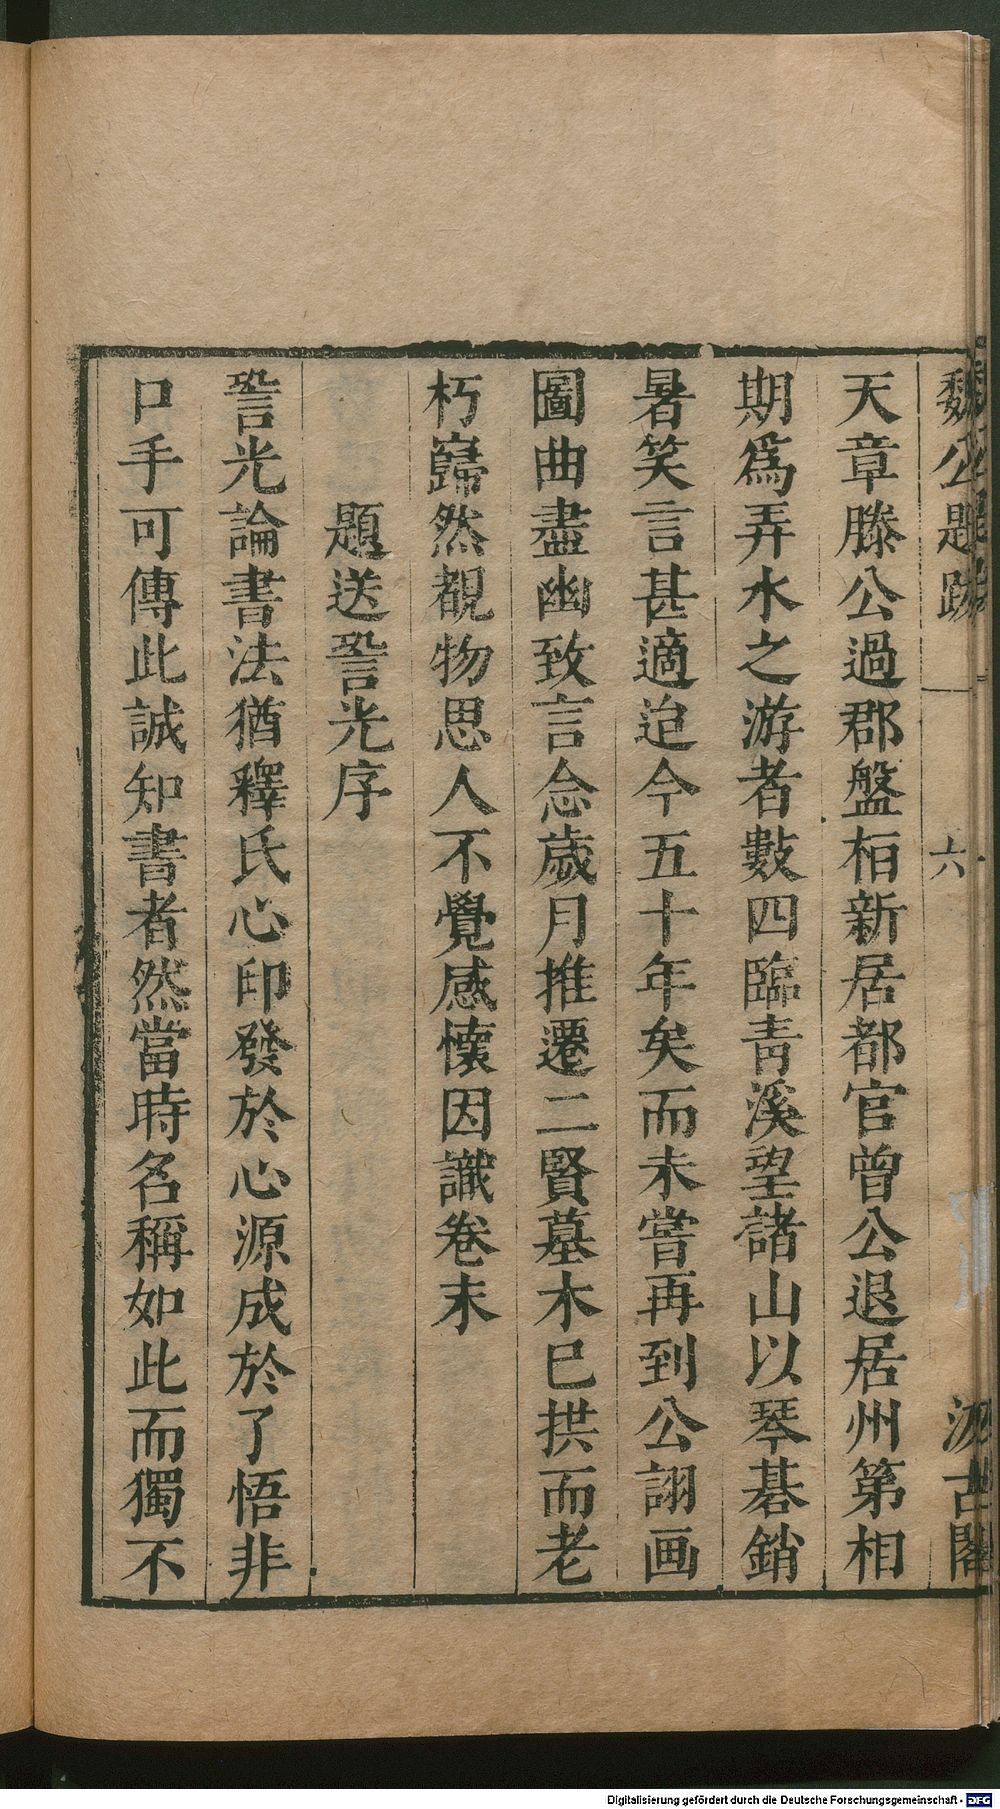 魏公題跋 六 汲古閣
天章滕公過郡盤桓新居都官曾公退居州第相
期為弄水之游者數四臨青溪望諸山以琴碁銷
暑笑言甚適迨今五十年矣而未嘗再到公詡画
圖曲盡幽致言念歲月推遷二賢墓木已拱而老
朽巋然覩物思人不覺感懷因識卷末
題送䛒光序
䛒光論書法猶釋氏心印發於心源成於了悟非
口手可傳此誠知書者然當時名稱如此而獨不
Digitalisierung gefördert durch die Deutsche Forschungsgemeinschaft - DFG